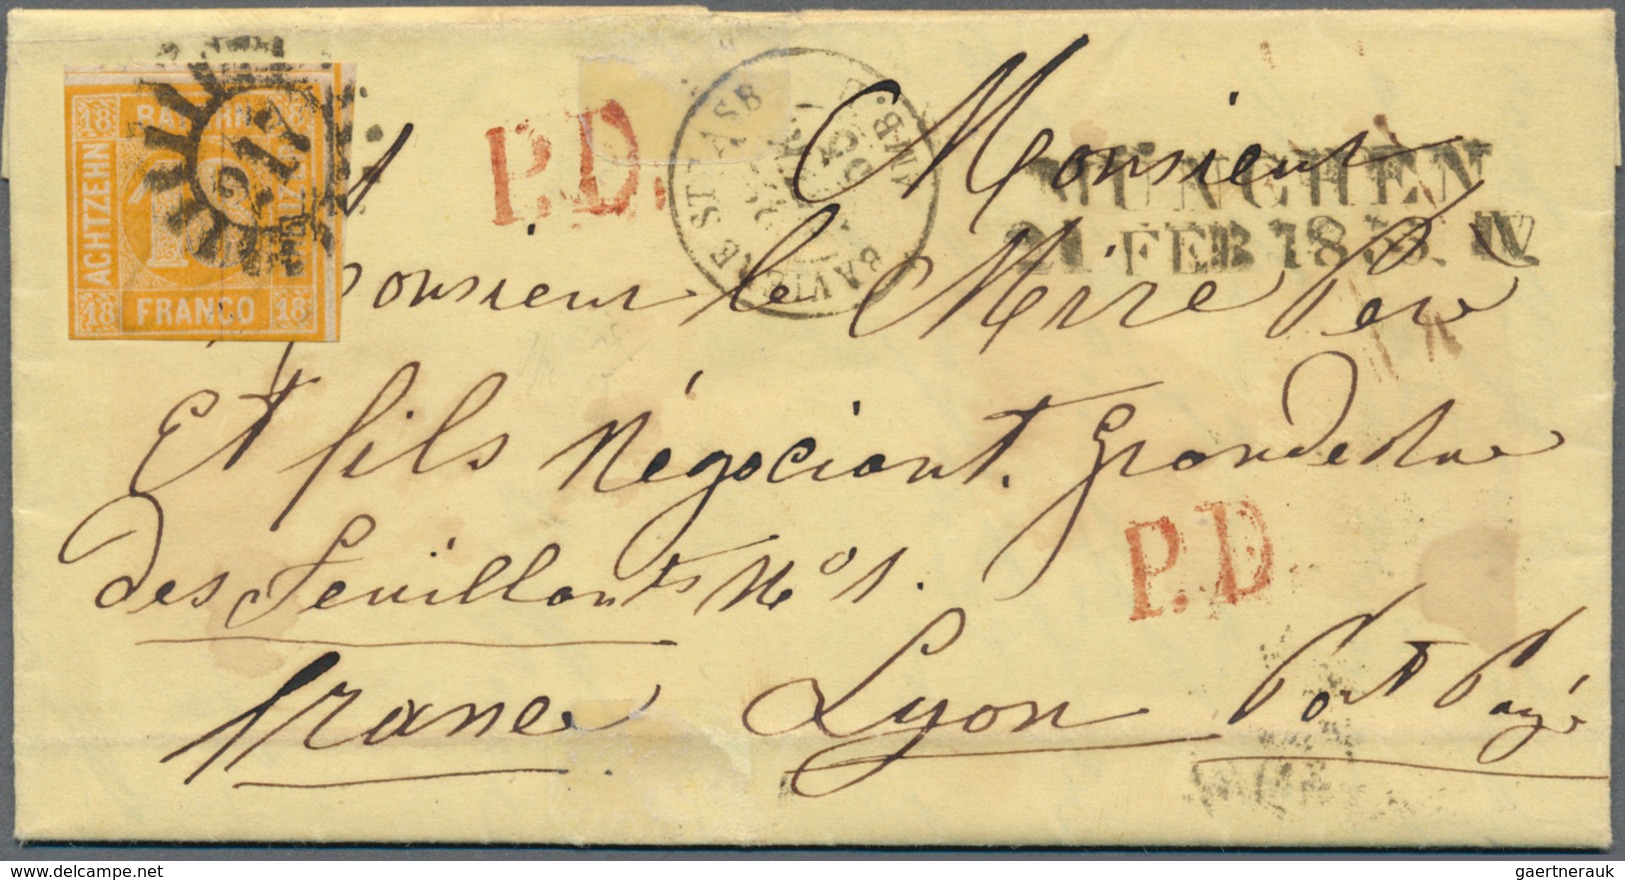 18 BAYERN 18
ACHTZEHN
18
FRANCO
217
P.D.
BAVIERE STRASB
MÜNCHEN
21 FEB 18 IV
Monsieur
Monsieur le Mire Père
Et fils Négociant. Grande Rue
des Feuillants No 1.
P.D
France Lyon Port Payé
gaertnerauk